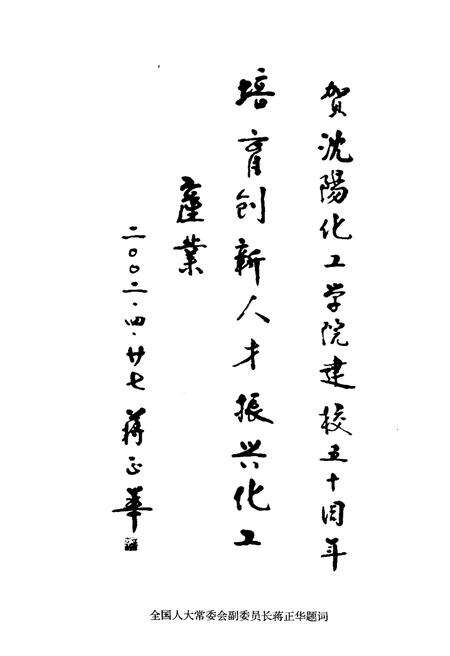 賀沈陽化工学院建校五十周年
培育創新人才振兴化工
產業
二〇〇二·四·廿七 蒋正華
全国人大常委会副委员长蒋正华题词